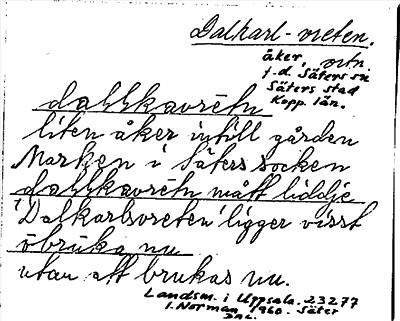 Dalkarl-vreten.
åker, ortn.
f.d. Säters sn
Säters stad
Kopp. län.
dallkavrētn
liten åker intill gården
Marken i Säters socken
dallkavrētn mått liddje
'Dalkarlsvreten' ligger visst
ōbruka nu
utan att brukas nu.
Landsm. i Uppsala. 23277
I. Norman 1960. Säter